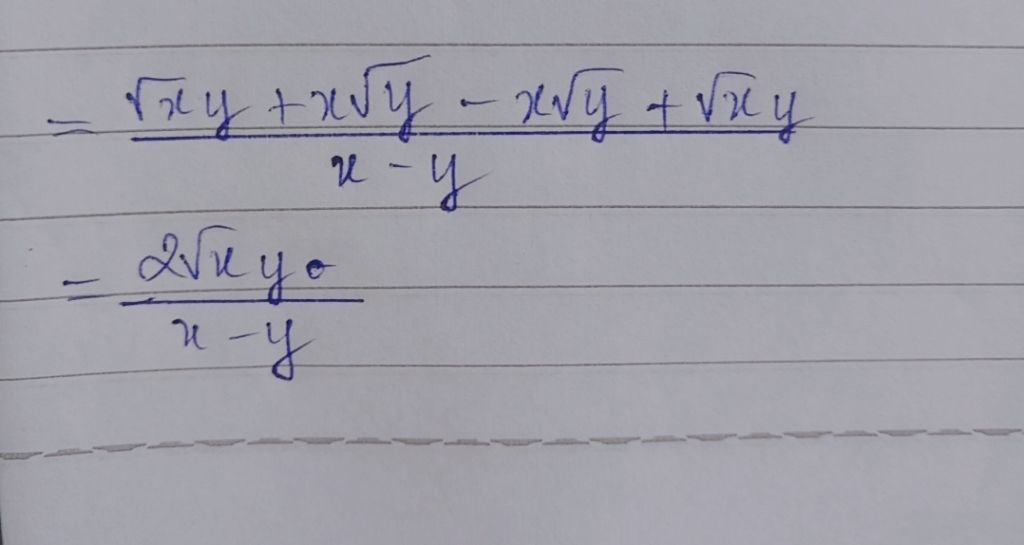 = √x y + x√y - x√y + √x y
x - y
= 2√x y
x - y